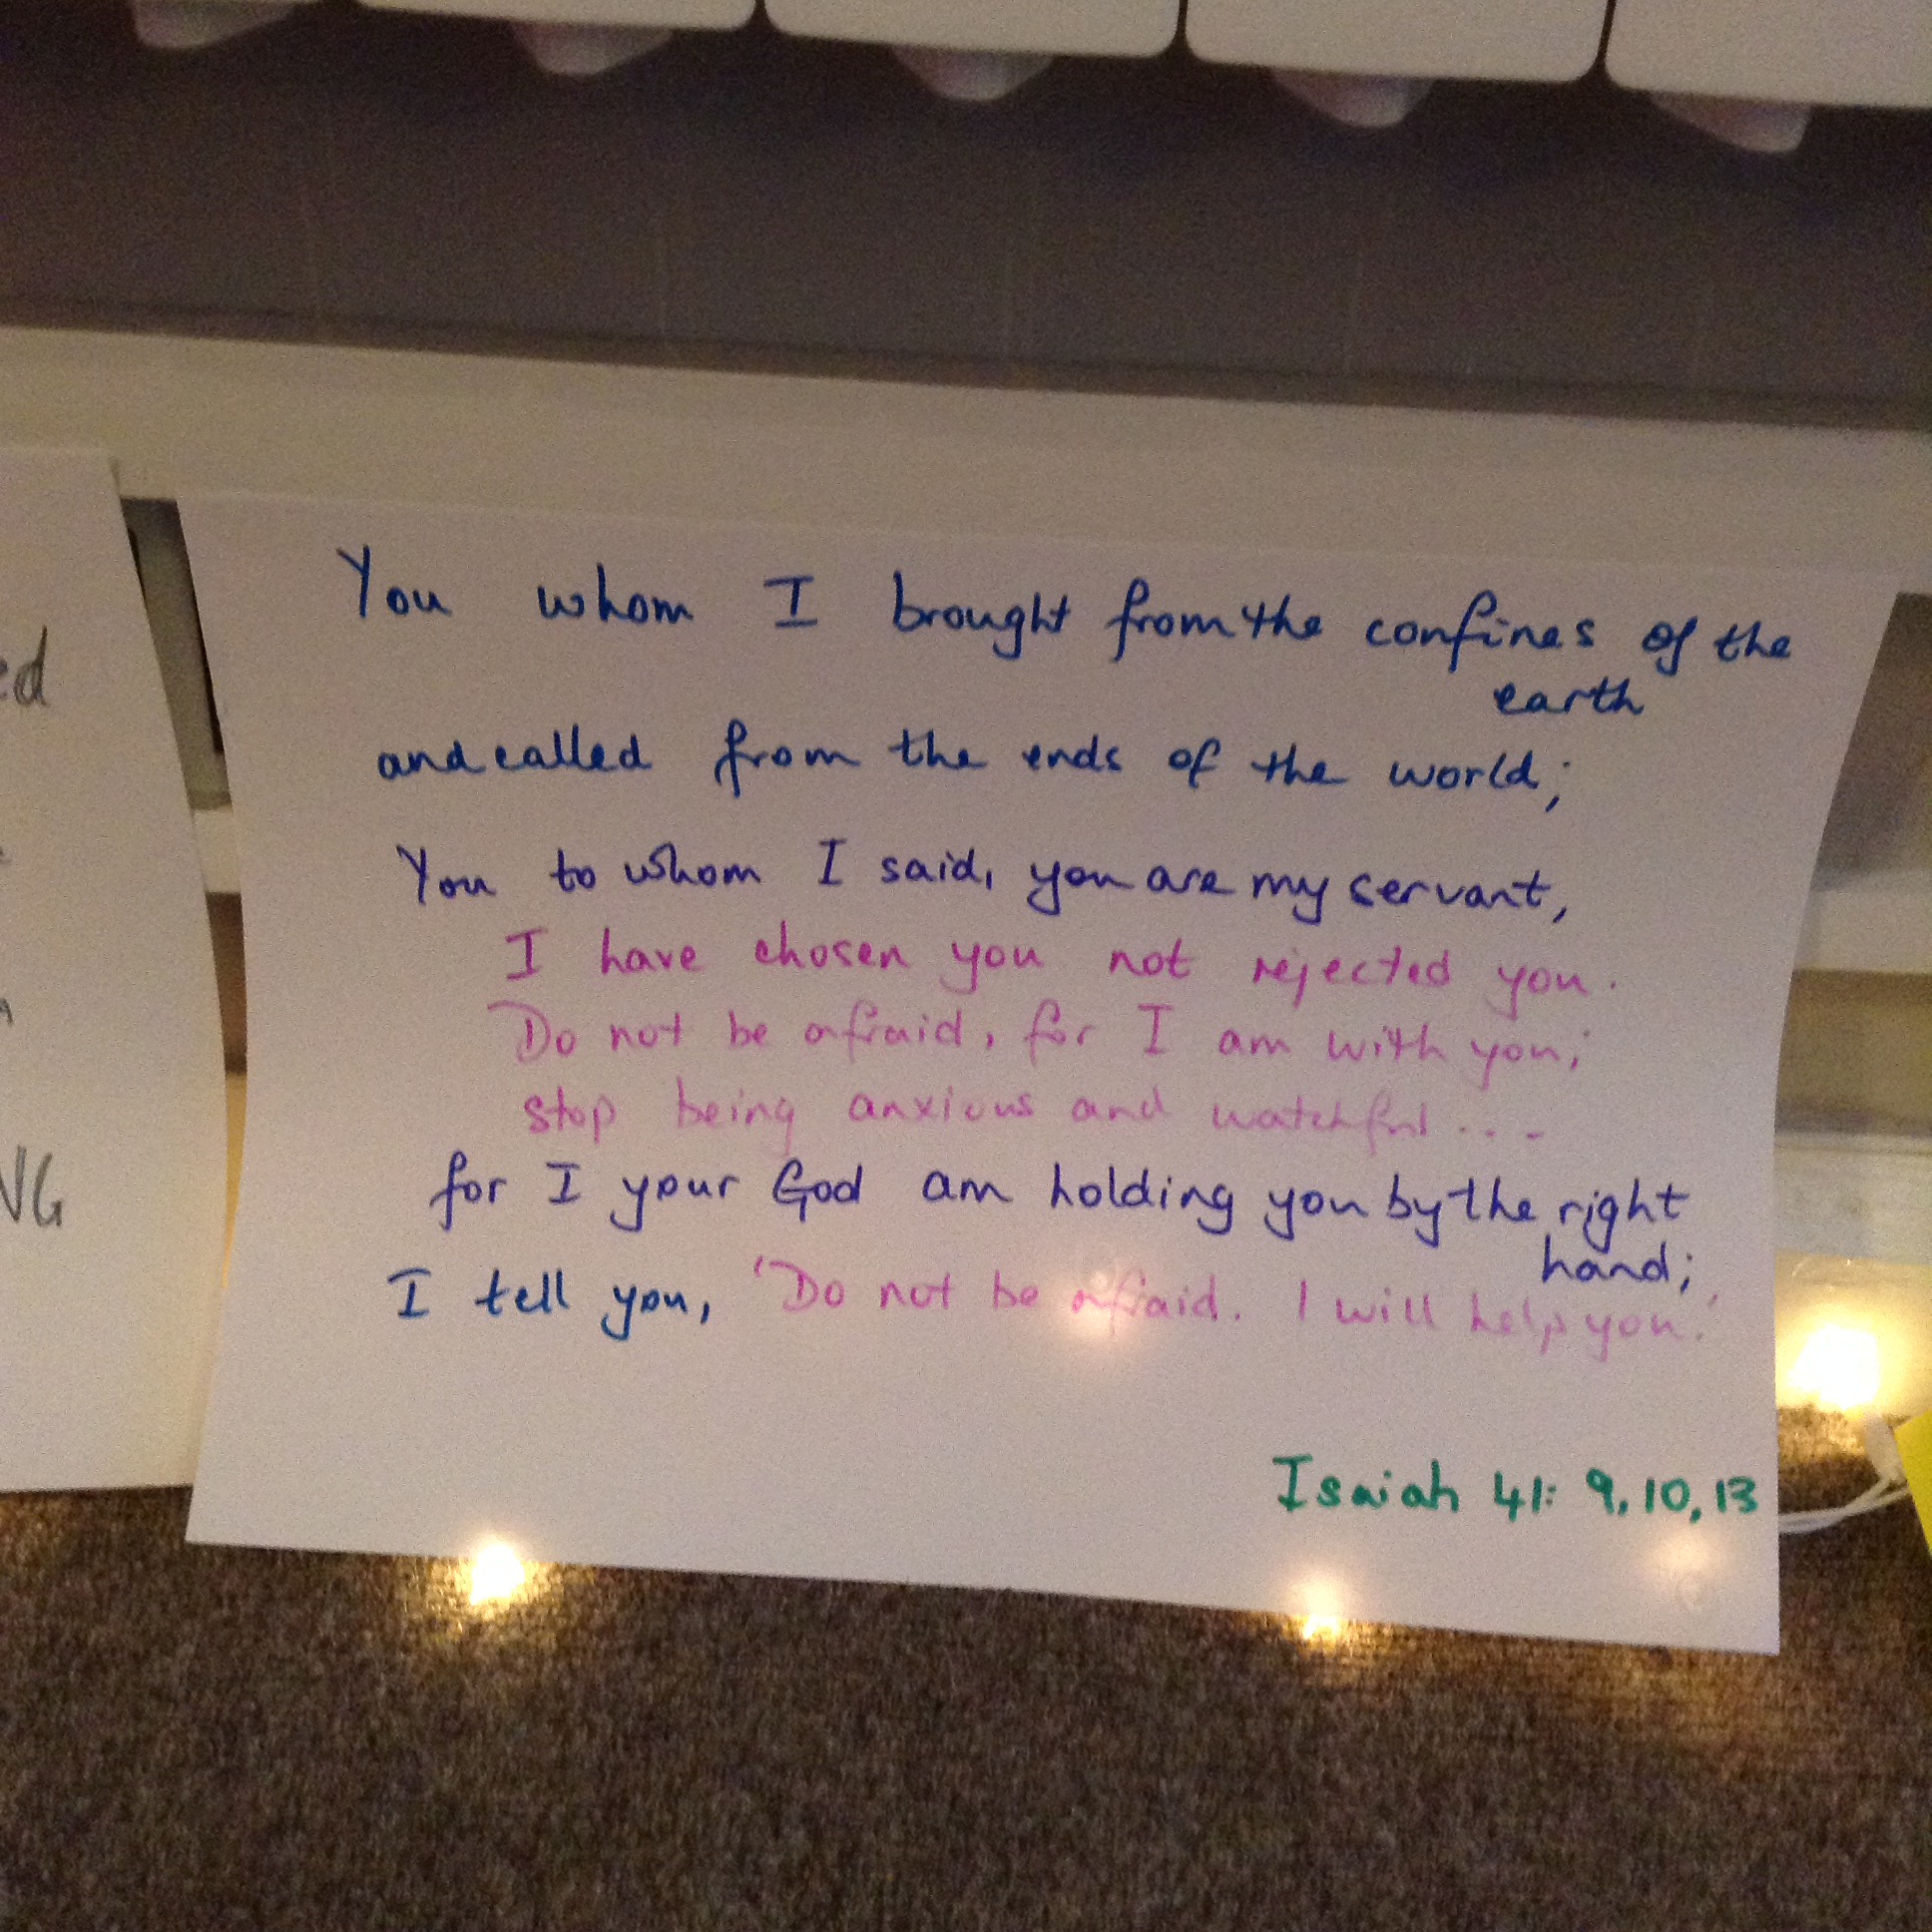 You whom I brought from the confines of the
earth
and called from the ends of the world;
You to whom I said, you are my servant,
I have chosen you not rejected you.
Do not be afraid, for I am with you;
stop being anxious and watchful...
for I your God am holding you by the right
hand;
I tell you, 'Do not be afraid. I will help you.'
Isaiah 41: 9, 10, 13
ed
NG